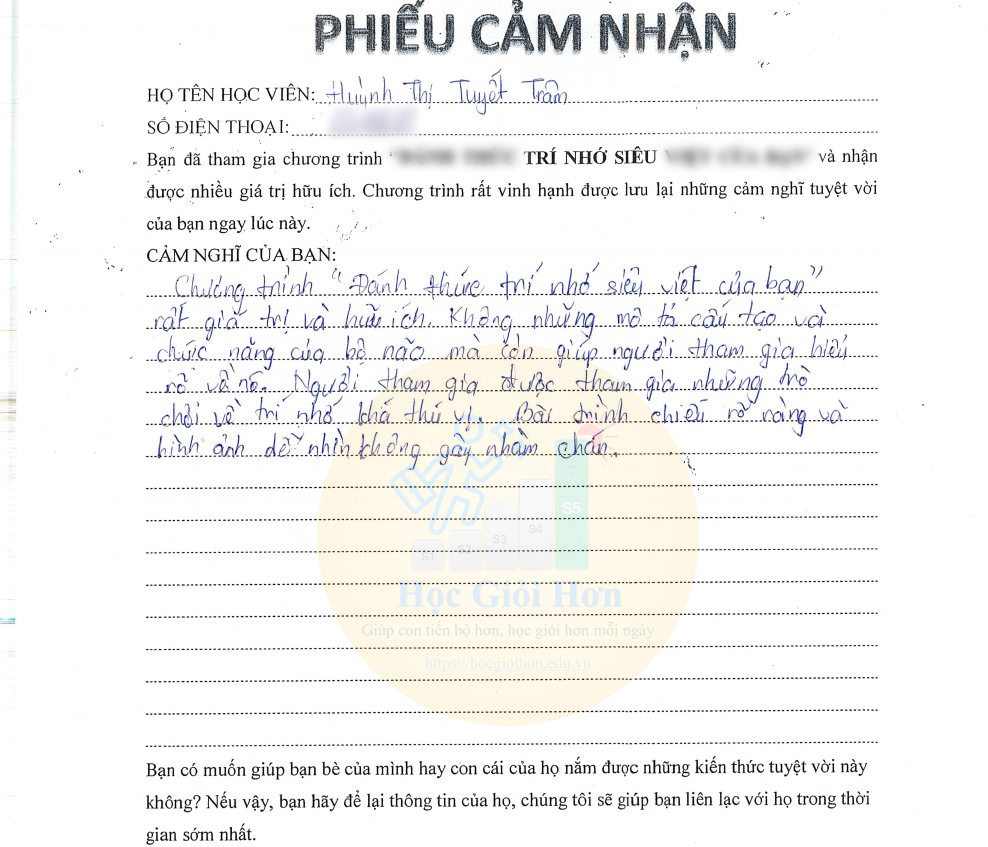 PHIẾU CẢM NHẬN
HỌ TÊN HỌC VIÊN: Huỳnh Thị Tuyết Trâm
SỐ ĐIỆN THOẠI:
Bạn đã tham gia chương trình " TRÍ NHỚ SIÊU " và nhận
được nhiều giá trị hữu ích. Chương trình rất vinh hạnh được lưu lại những cảm nghĩ tuyệt vời
của bạn ngay lúc này.
CẢM NGHĨ CỦA BẠN:
Chương trình "Đánh thức trí nhớ siêu việt của bạn"
rất giá trị và hữu ích. Không những mô tả cấu tạo và
chức năng của bộ não mà còn giúp người tham gia hiểu
rõ về nó. Người tham gia được tham gia những trò
chơi về trí nhớ khá thú vị. Bài trình chiếu rõ ràng và
hình ảnh dễ nhìn không gây nhàm chán.
S1 S2 S3 S4 S5
Học Giỏi Hơn
Giúp con tiến bộ hơn, học giỏi hơn mỗi ngày
https://hocgioihon.edu.vn
Bạn có muốn giúp bạn bè của mình hay con cái của họ nắm được những kiến thức tuyệt vời này
không? Nếu vậy, bạn hãy để lại thông tin của họ, chúng tôi sẽ giúp bạn liên lạc với họ trong thời
gian sớm nhất.